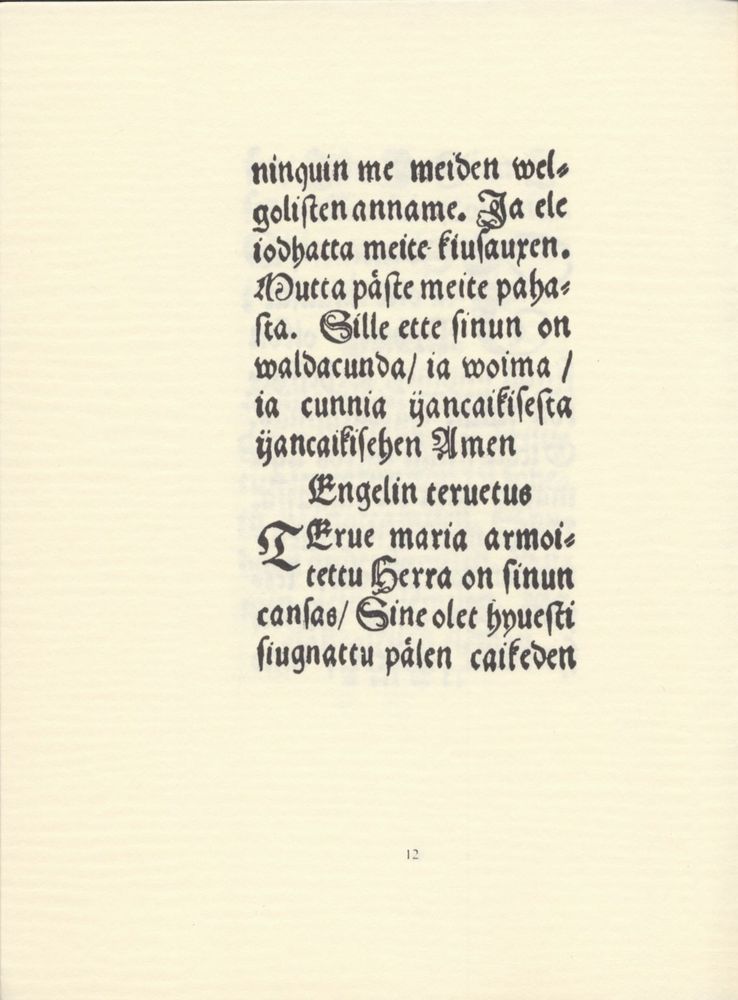 ninquin me meiden wel⸗
goliſten anname. Ja ele
iodhatta meite kiuſauxen.
Mutta påſte meite paha⸗
ſta. Sille ette ſinun on
waldacunda/ ia woima /
ia cunnia ÿancaikiſeſta
ÿancaikiſehen Amen
Engelin teruetus
TErue maria armoi⸗
tettu Herra on ſinun
canſas/ Sine olet hyueſti
ſiugnattu pålen caikeden
12